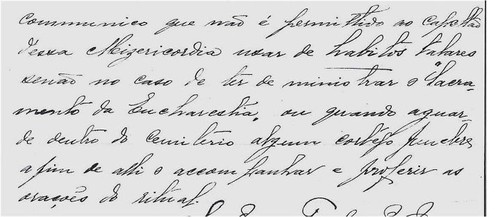 communico que não é permittido ao Capellão
dessa Mizericordia usar de habitos talares
senão no caso de ter de ministrar o Sacra-
mento da Eucharestia, ou quando aguar-
de dentro do cemiterio algum cortejo funebre,
afim de alli o accompanhar e proferir as
orações do ritual.